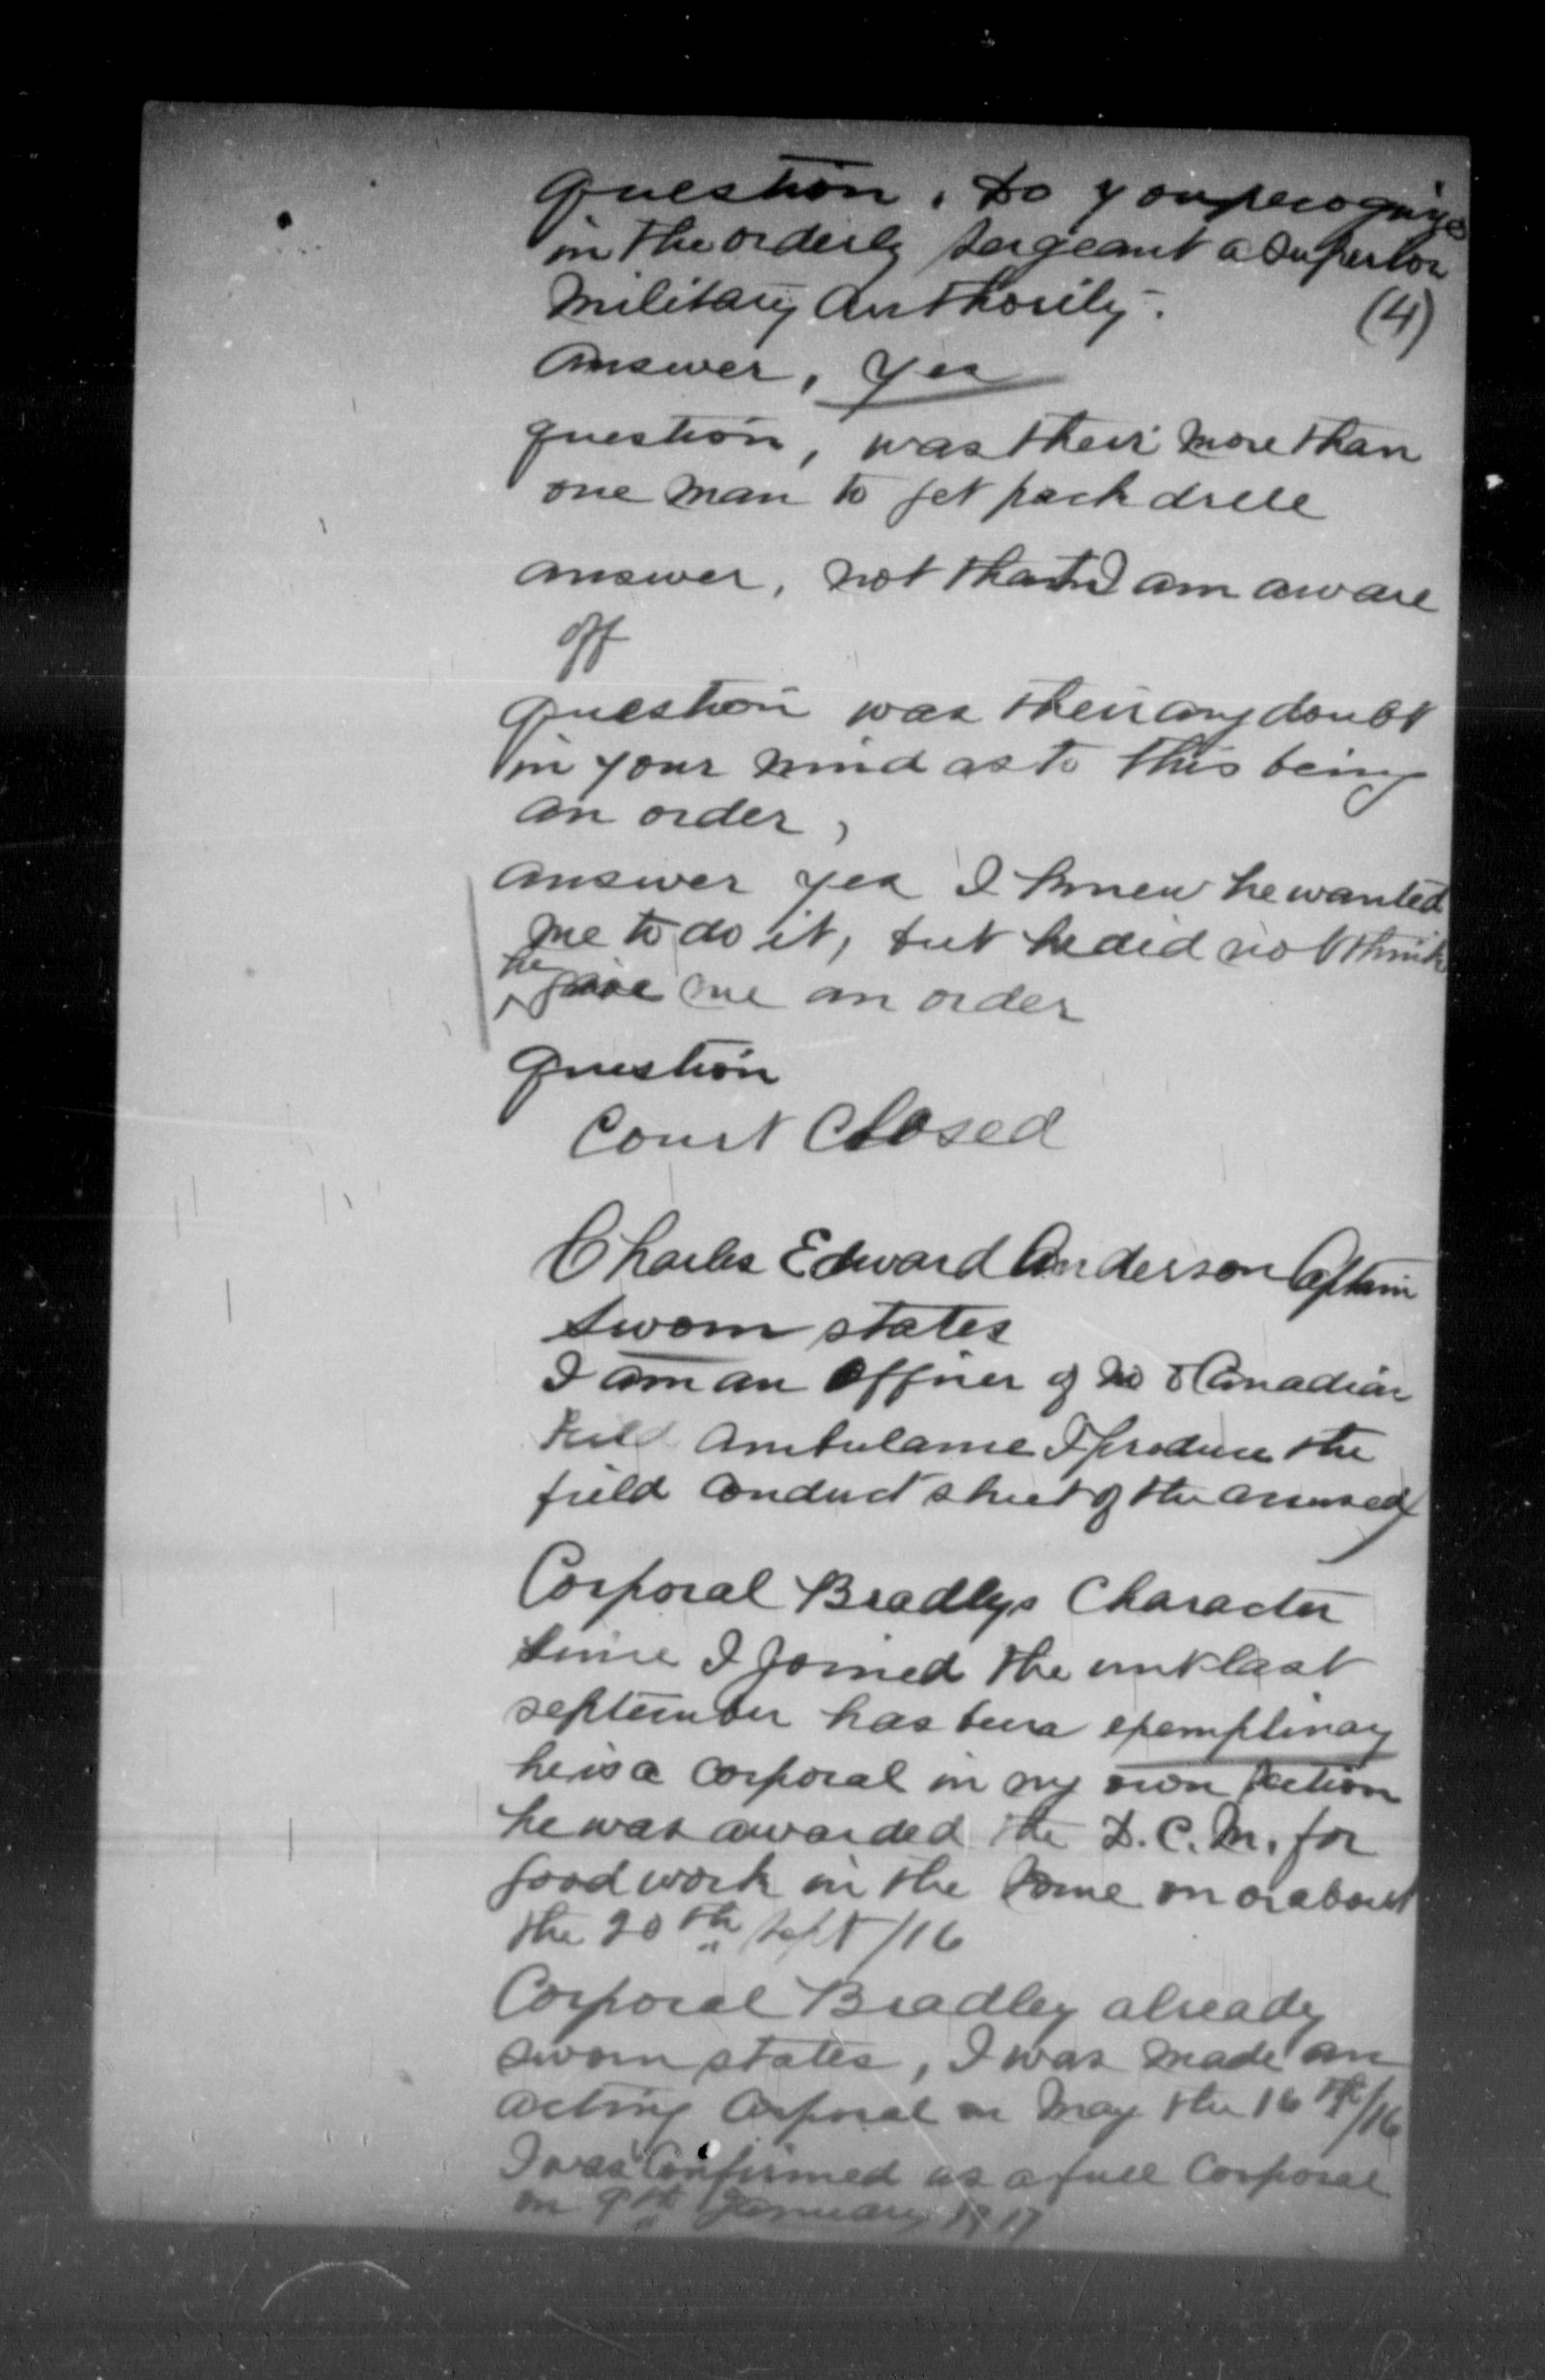 question. Do you recognize
in the orderly sergeant a superior
Military authority.
(4)
Answer, yes
question, was their more than
one man to get pack drill
answer, not that I am aware
off
question was their any doubt
in your mind as to this being
an order,
answer yes I knew he wanted
me to do it, but he did not think
he gave me an order
question
Court Closed
Charles Edward Anderson Captain
sworn states
I am an officer of No 8 Canadian
Field Ambulance I produce the
field conduct sheet of the accused
Corporal Bradleys Character
since I joined the unit last
september has been exemplinary
he is a corporal in my own section
he was awarded the D.C.M. for
good work in the Some on or about
the 20th Sept/16
Corporal Bradley already
sworn states, I was made an
acting Corporal on May the 16th/16
I was confirmed as a full Corporal
on 9th January 1917